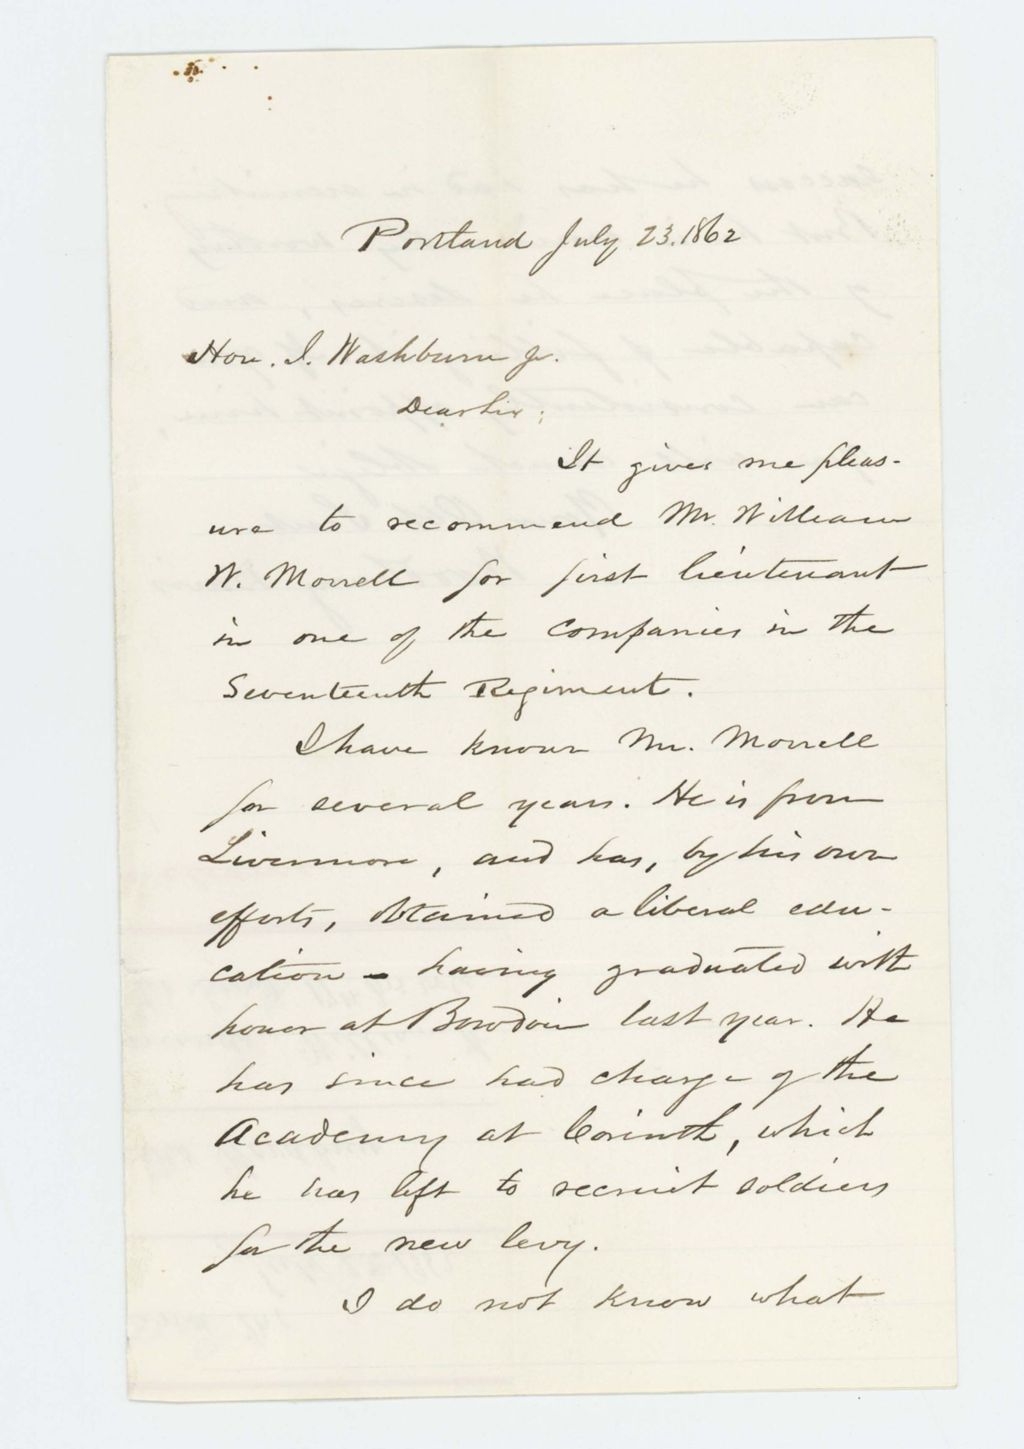 Portland July 23. 1862
Hon. I. Washburn Jr.
Dear Sir;
It gives me pleas-
ure to recommend Mr. William
W. Morrell for first lieutenant
in one of the companies in the
Seventeenth Regiment.
I have known Mr. Morrell
for several years. He is from
Livermore, and has, by his own
efforts, obtained a liberal edu-
cation - having graduated with
honor at Bowdoin last year. He
has since had charge of the
Academy at Corinth, which
he has left to recruit soldiers
for the new levy.
I do not know what